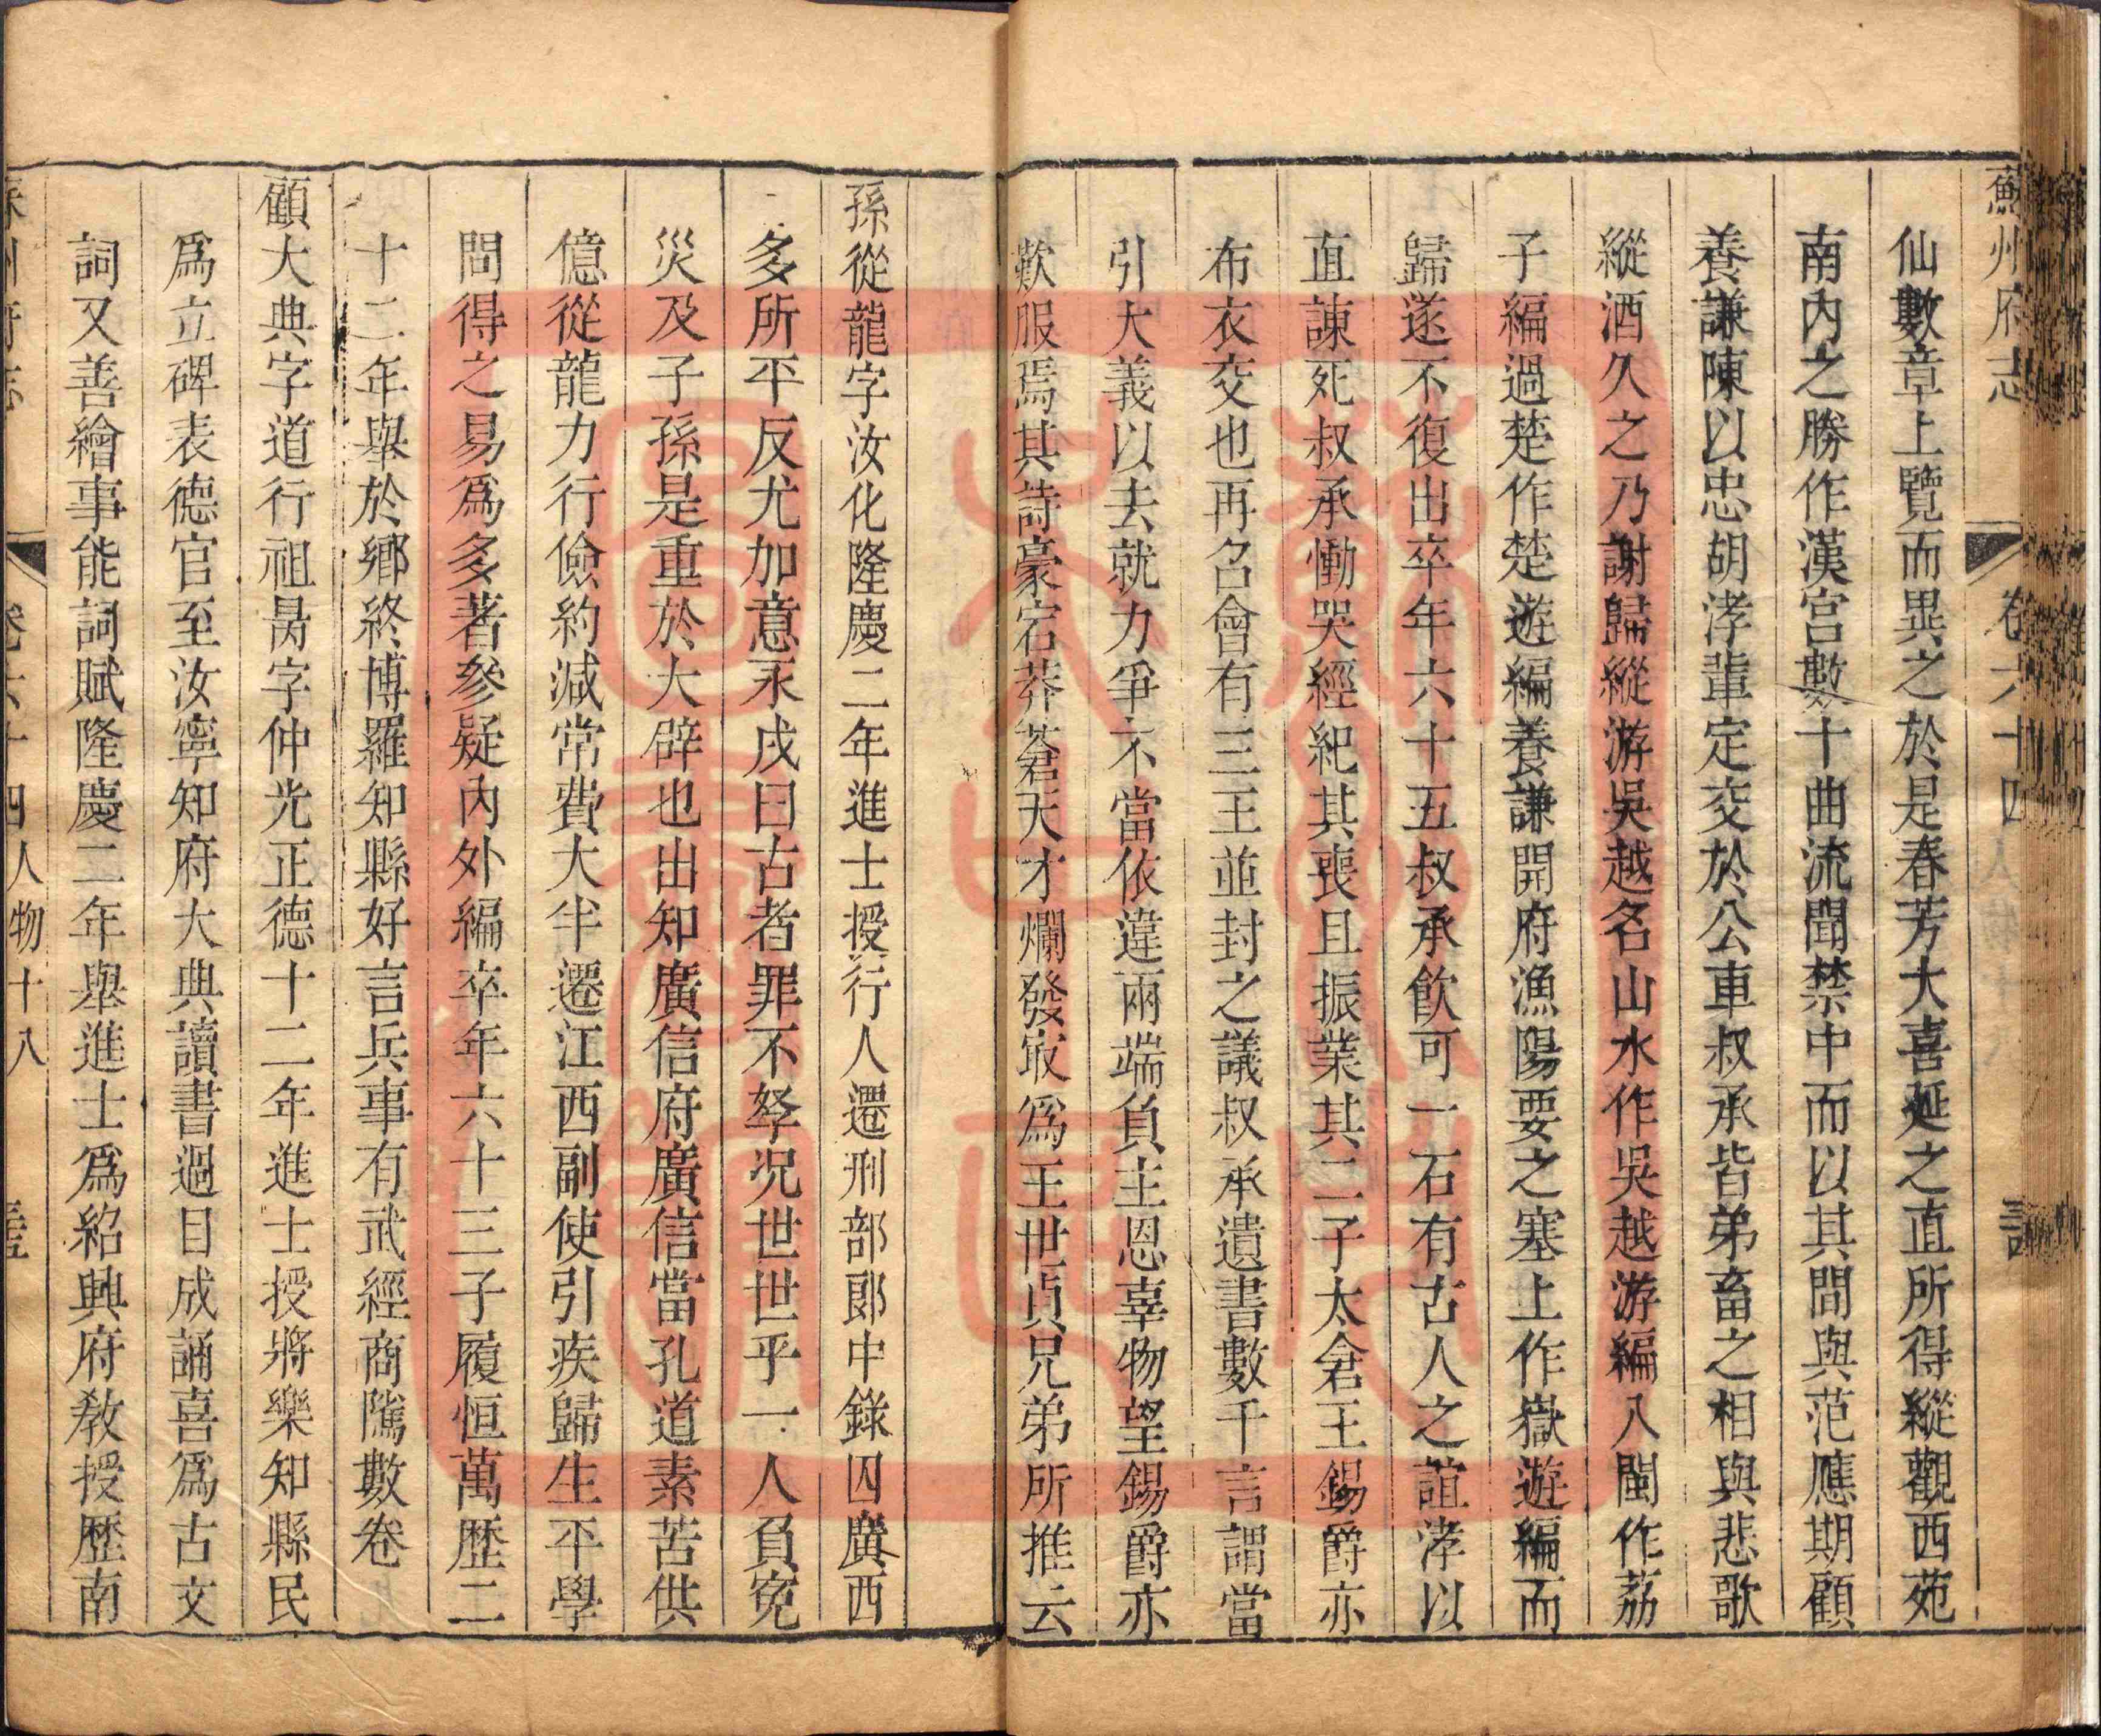 蘇州府志 卷六十四
仙數章上覽而異之於是春芳大喜延之直所得縱觀西苑
南內之勝作漢宮數十曲流聞禁中而以其間與范應期顧
養謙陳以忠胡涍輩定交於公車叔承皆弟畜之相與悲歌
縱酒久之乃謝歸縱游吳越名山水作吳越游編入閩作荔
子編過楚作楚遊編養謙開府漁陽要之塞上作嶽遊編而
歸遂不復出卒年六十五叔承飲可一石有古人之誼涍以
直諫死叔承慟哭經紀其喪且振業其二子太倉王錫爵亦
布衣交也再召會有三王並封之議叔承遺書數千言謂當
引大義以去就力爭不當依違兩端負主恩辜物望錫爵亦
歎服焉其詩豪宕莽蒼天才爛發㝡為王世貞兄弟所推云
孫從龍字汝化隆慶二年進士授行人遷刑部郎中錄囚廣西
多所平反尤加意永戍曰古者罪不孥況世世乎一人負寃
災及子孫是重於大辟也出知廣信府廣信當孔道素苦供
億從龍力行儉約減常費大半遷江西副使引疾歸生平學
問得之易為多著參疑內外編卒年六十三子履恒萬歷二
十二年舉於鄉終博羅知縣好言兵事有武經商隲數卷
顧大典字道行祖昺字仲光正德十二年進士授將樂知縣民
為立碑表德官至汝寧知府大典讀書過目成誦喜為古文
詞又善繪事能詞賦隆慶二年舉進士為紹興府教授歷南
卷六十四 人物十八